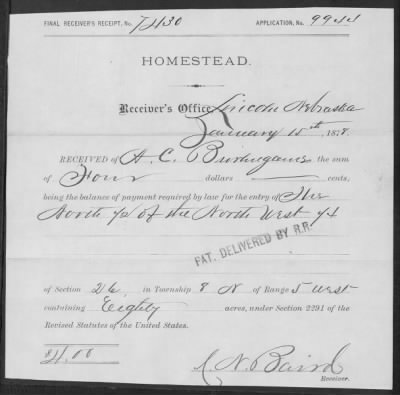 FINAL RECEIVER'S RECEIPT, No. APPLICATION, No.
HOMESTEAD.
Receiver's Office, Lincoln Nebraska
January 15th 1878.
RECEIVED of A. C. Burlingame the sum
of Four dollars cents,
being the balance of payment required by law for the entry of The
North ½ of the North West ¼
PAT. DELIVERED BY R.R.
of Section 26 in Township 8 N of Range 5 West
containing Eighty acres, under Section 2291 of the
Revised Statutes of the United States.
$4.00
N. Baird
Receiver.